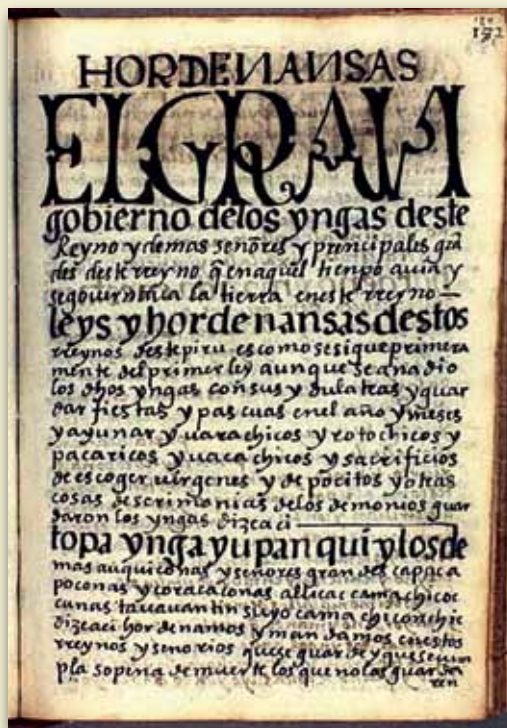 HORDENANSAS
EL GRAN
gobierno delos yngas deste
Reyno y demas señores y prencipales grã
des deste rreyno q̃ en aquel tienpo auia y
se gouernaua la tierra en este rreyno
leys y hordenansas destos
rreynos deste piru es como se sique primera
mente del primer ley aunque se anadio
los dhos yngas con sus ydulatras y quar
dar fiestas y pascuas en el año y meses
y ayunar y uarachicos y rotochicos y
pacaricos y uacachicos y sacrificios
de escoger uirgenes y de pocitos y otras
cosas de scrimonias de los demonios guar
daron los yngas dize aci
topa ynga yupanqui y los de
mas auquiconas y señores grandes capac a
poconas y coracaconas allicac camachicoc
cunas tauauantin suyo camachiconchic
dize aci hordenamos y mandamos en estos
rreynos y señorios que se guarde y que se cum
pla so pena de muerte los que no las guarda
ren